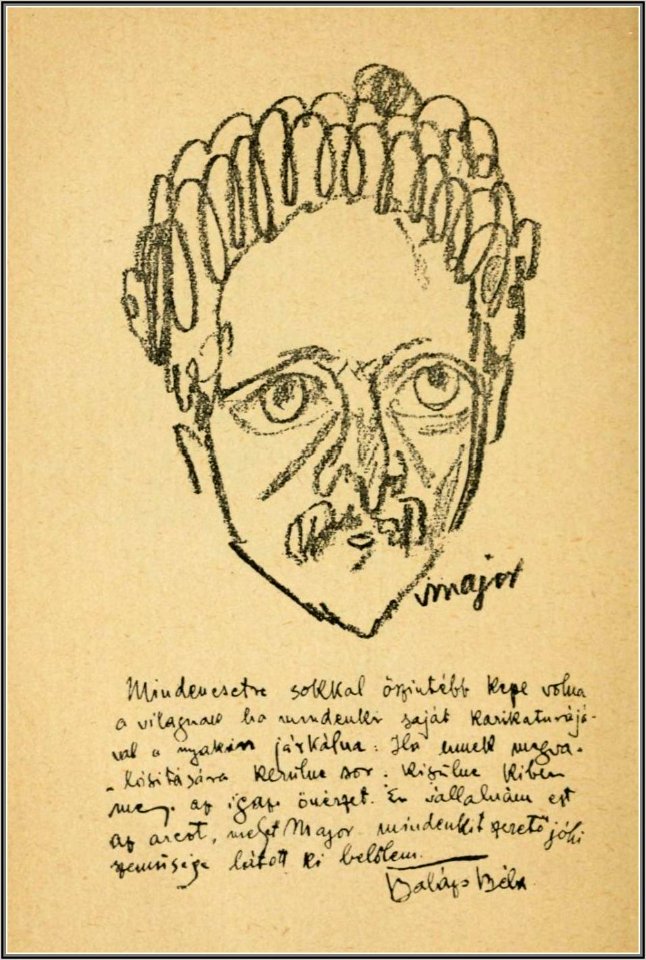 major
Mindenesetre sokkal őszintébb képe volna
a világnak ha mindenki saját karikaturájá-
val a nyakán járkálna. Ha ennek megva-
lósítására kerülne sor. kisülne kiben
az igazi önérzet. Én vállalnám ezt
az arcot, melyet Major mindenkit szerető jóki
látott ki belőlem.
Balázs Béla